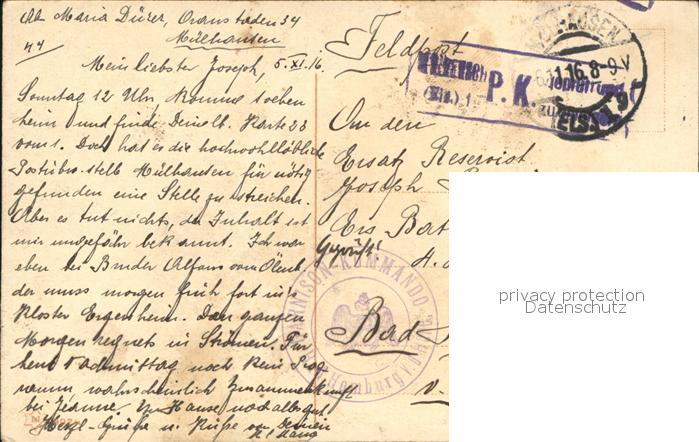 Ab. Maria Dürer,
Mülhausen
Mein liebster Joseph, 5. XI. 16.
Sonntag 12 Uhr, komme soeben
heim und finde Karte 23
vom 1. Doch hat es die hochwohllöbliche
Mülhausen für nötig
gefunden eine Stelle zu streichen.
Aber es tut nichts, der Inhalt ist
mir ungefähr bekannt. Ich war
eben bei Bruder Alfons
der muss morgen früh fort in's
Kloster Ergenheim. Den ganzen
Morgen regnets in Strömen. Für
heut Nachmittag noch kein Prog
ramm, wahrscheinlich Zusammenkunft
bei Jeanne. Zu Hause noch alles gut
Herzl. Grüße u. Küsse von deinem
Feldpost
P. K.
MÜLHAUSEN
6.11.16. 8-9 V
(ELS.)
An den
Ersatz Reservist
Joseph
Ers Bat
Geprüft!
GARNISON-KOMMANDO
Bad Homburg v.
Bad
v.
privacy protection
Datenschutz